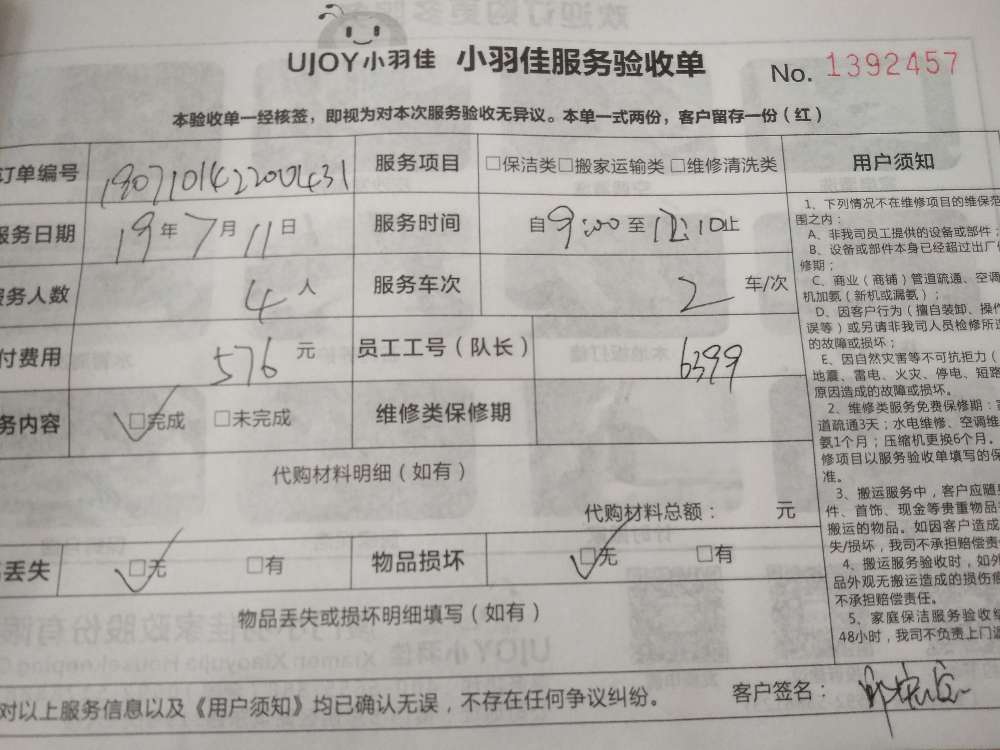 UJOY小羽佳 小羽佳服务验收单 No. 1392457
本验收单一经核签，即视为对本次服务验收无异议。本单一式两份，客户留存一份（红）
订单编号 190710142200431 服务项目 □保洁类□搬家运输类□维修清洗类
服务日期 19年7月11日 服务时间 自9:00至12:10止
服务人数 4人 服务车次 2车/次
付费用 576元 员工工号（队长） 6399
务内容 □完成 □未完成 维修类保修期
代购材料明细（如有）
代购材料总额： 元
丢失 □无 □有 物品损坏 □无 □有
物品丢失或损坏明细填写（如有）
对以上服务信息以及《用户须知》均已确认无误，不存在任何争议纠纷。 客户签名：
用户须知
1、下列情况不在维修项目的维保范
围之内：
A、非我司员工提供的设备或部件；
B、设备或部件本身已经超过出厂
修期；
C、商业（商铺）管道疏通、空调
机加氨（新机或漏氨）；
D、因客户行为（擅自装卸、操作
误等）或另请非我司人员检修所造
的故障或损坏；
E、因自然灾害等不可抗拒力（
地震、雷电、火灾、停电、短路
原因造成的故障或损坏。
2、维修类服务免费保修期：
道疏通3天；水电维修、空调维
氨1个月；压缩机更换6个月。
修项目以服务验收单填写的保
准。
3、搬运服务中，客户应随
件、首饰、现金等贵重物品
搬运的物品。如因客户造成
失/损坏，我司不承担赔偿责
4、搬运服务验收时，如外
品外观无搬运造成的损伤
不承担赔偿责任。
5、家庭保洁服务验收结
48小时，我司不负责上门返